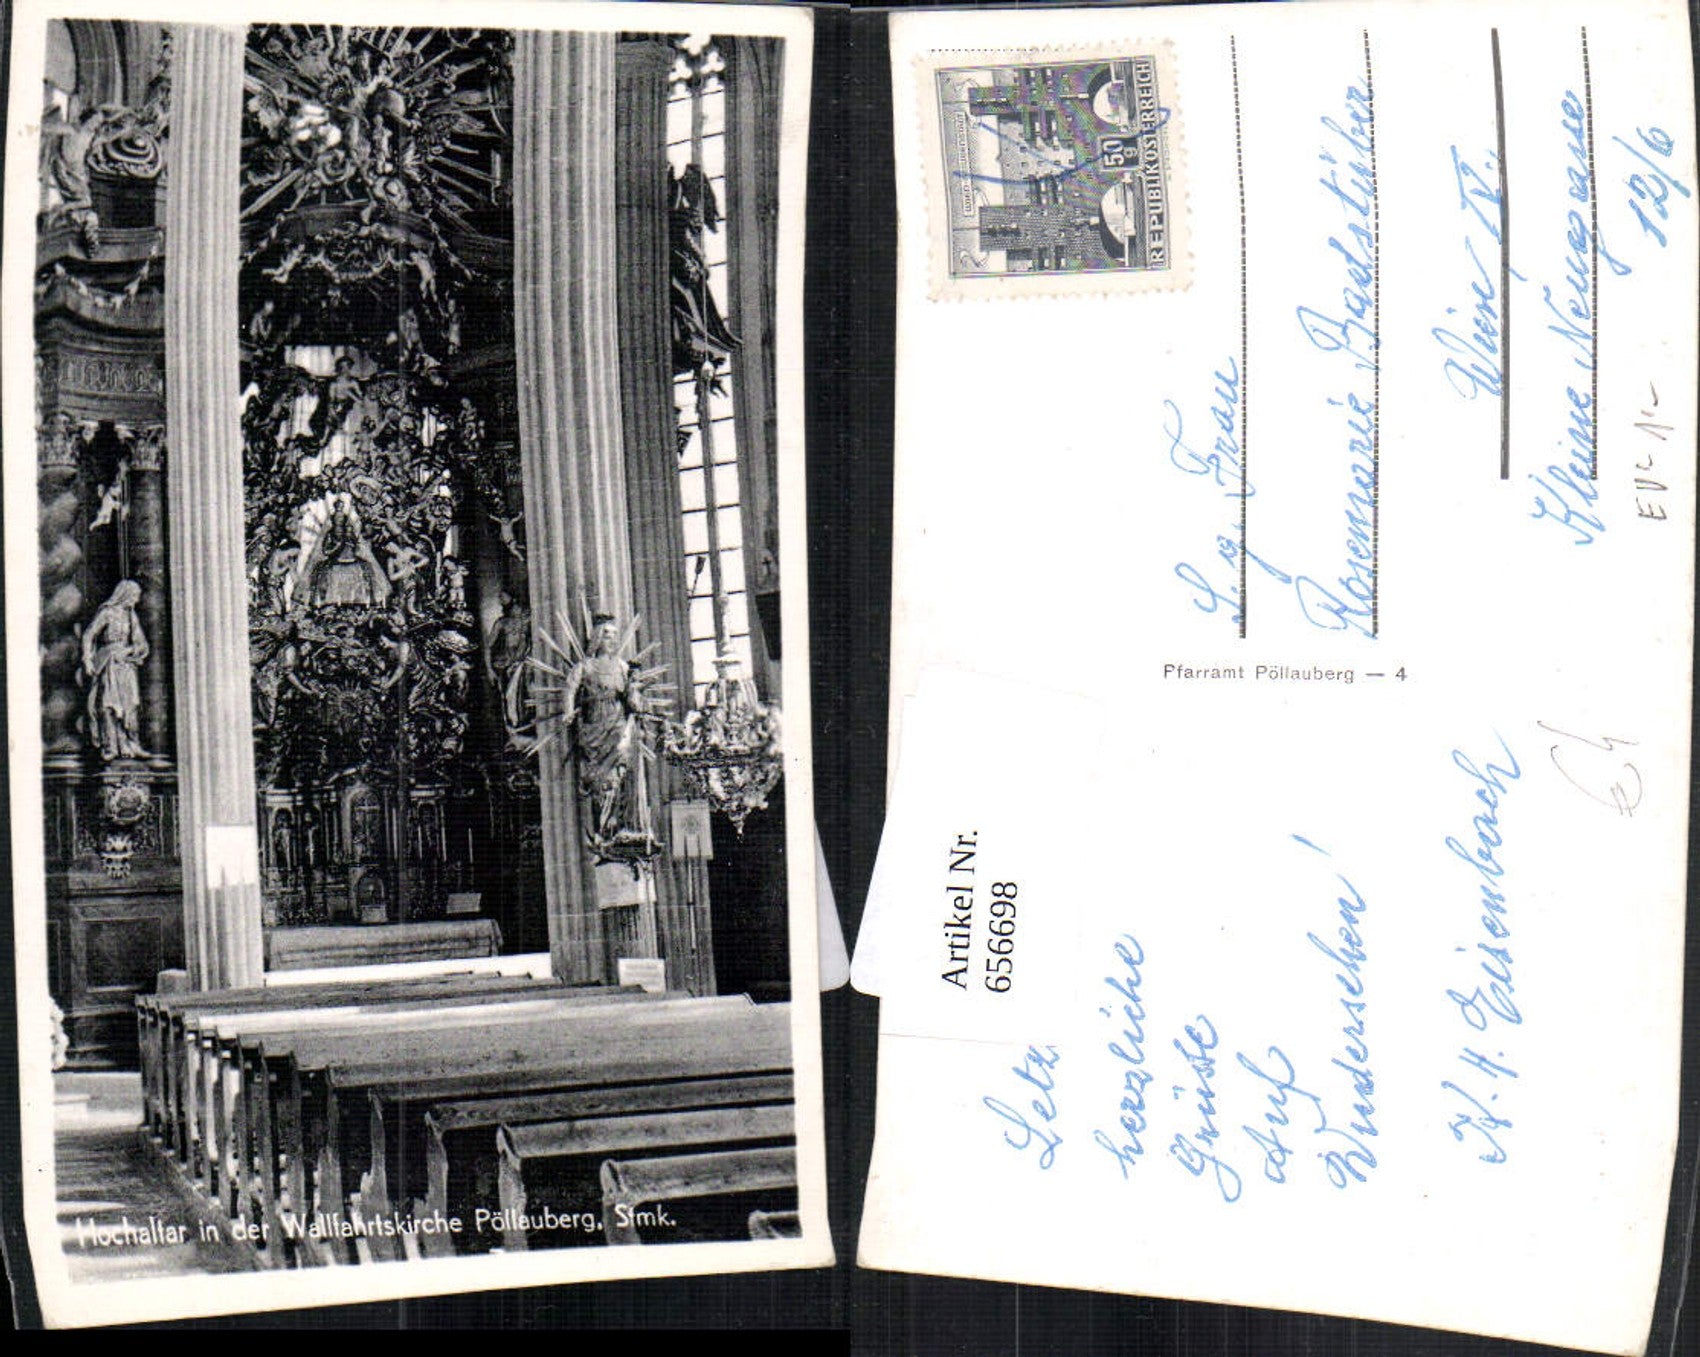 Hochaltar in der Wallfahrtskirche Pöllauberg, Stmk.
50 g
REPUBLIK ÖSTERREICH
S. g. Frau
Rosemarie
Wien IV.,
Kleine Neugasse
12/6
Pfarramt Pöllauberg — 4
Artikel Nr.
656698
Letz
herzliche
Grüße
Auf
Wiedersehen!
Eisenbach